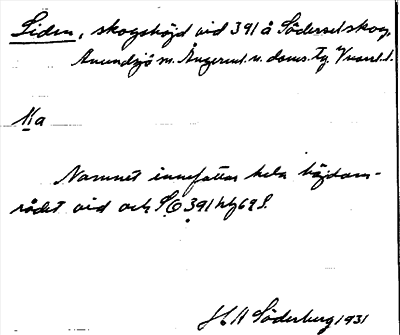 Liden, skogshöjd vid 391 å Söderselskog,
Anundsjö sn. Ångerml. n. doms. tg. Vnorrl. l.
IIa
Namnet innefattar hela höjdom-
rådet vid och S.O 391 kbf 69 S.
H A Söderberg 1931